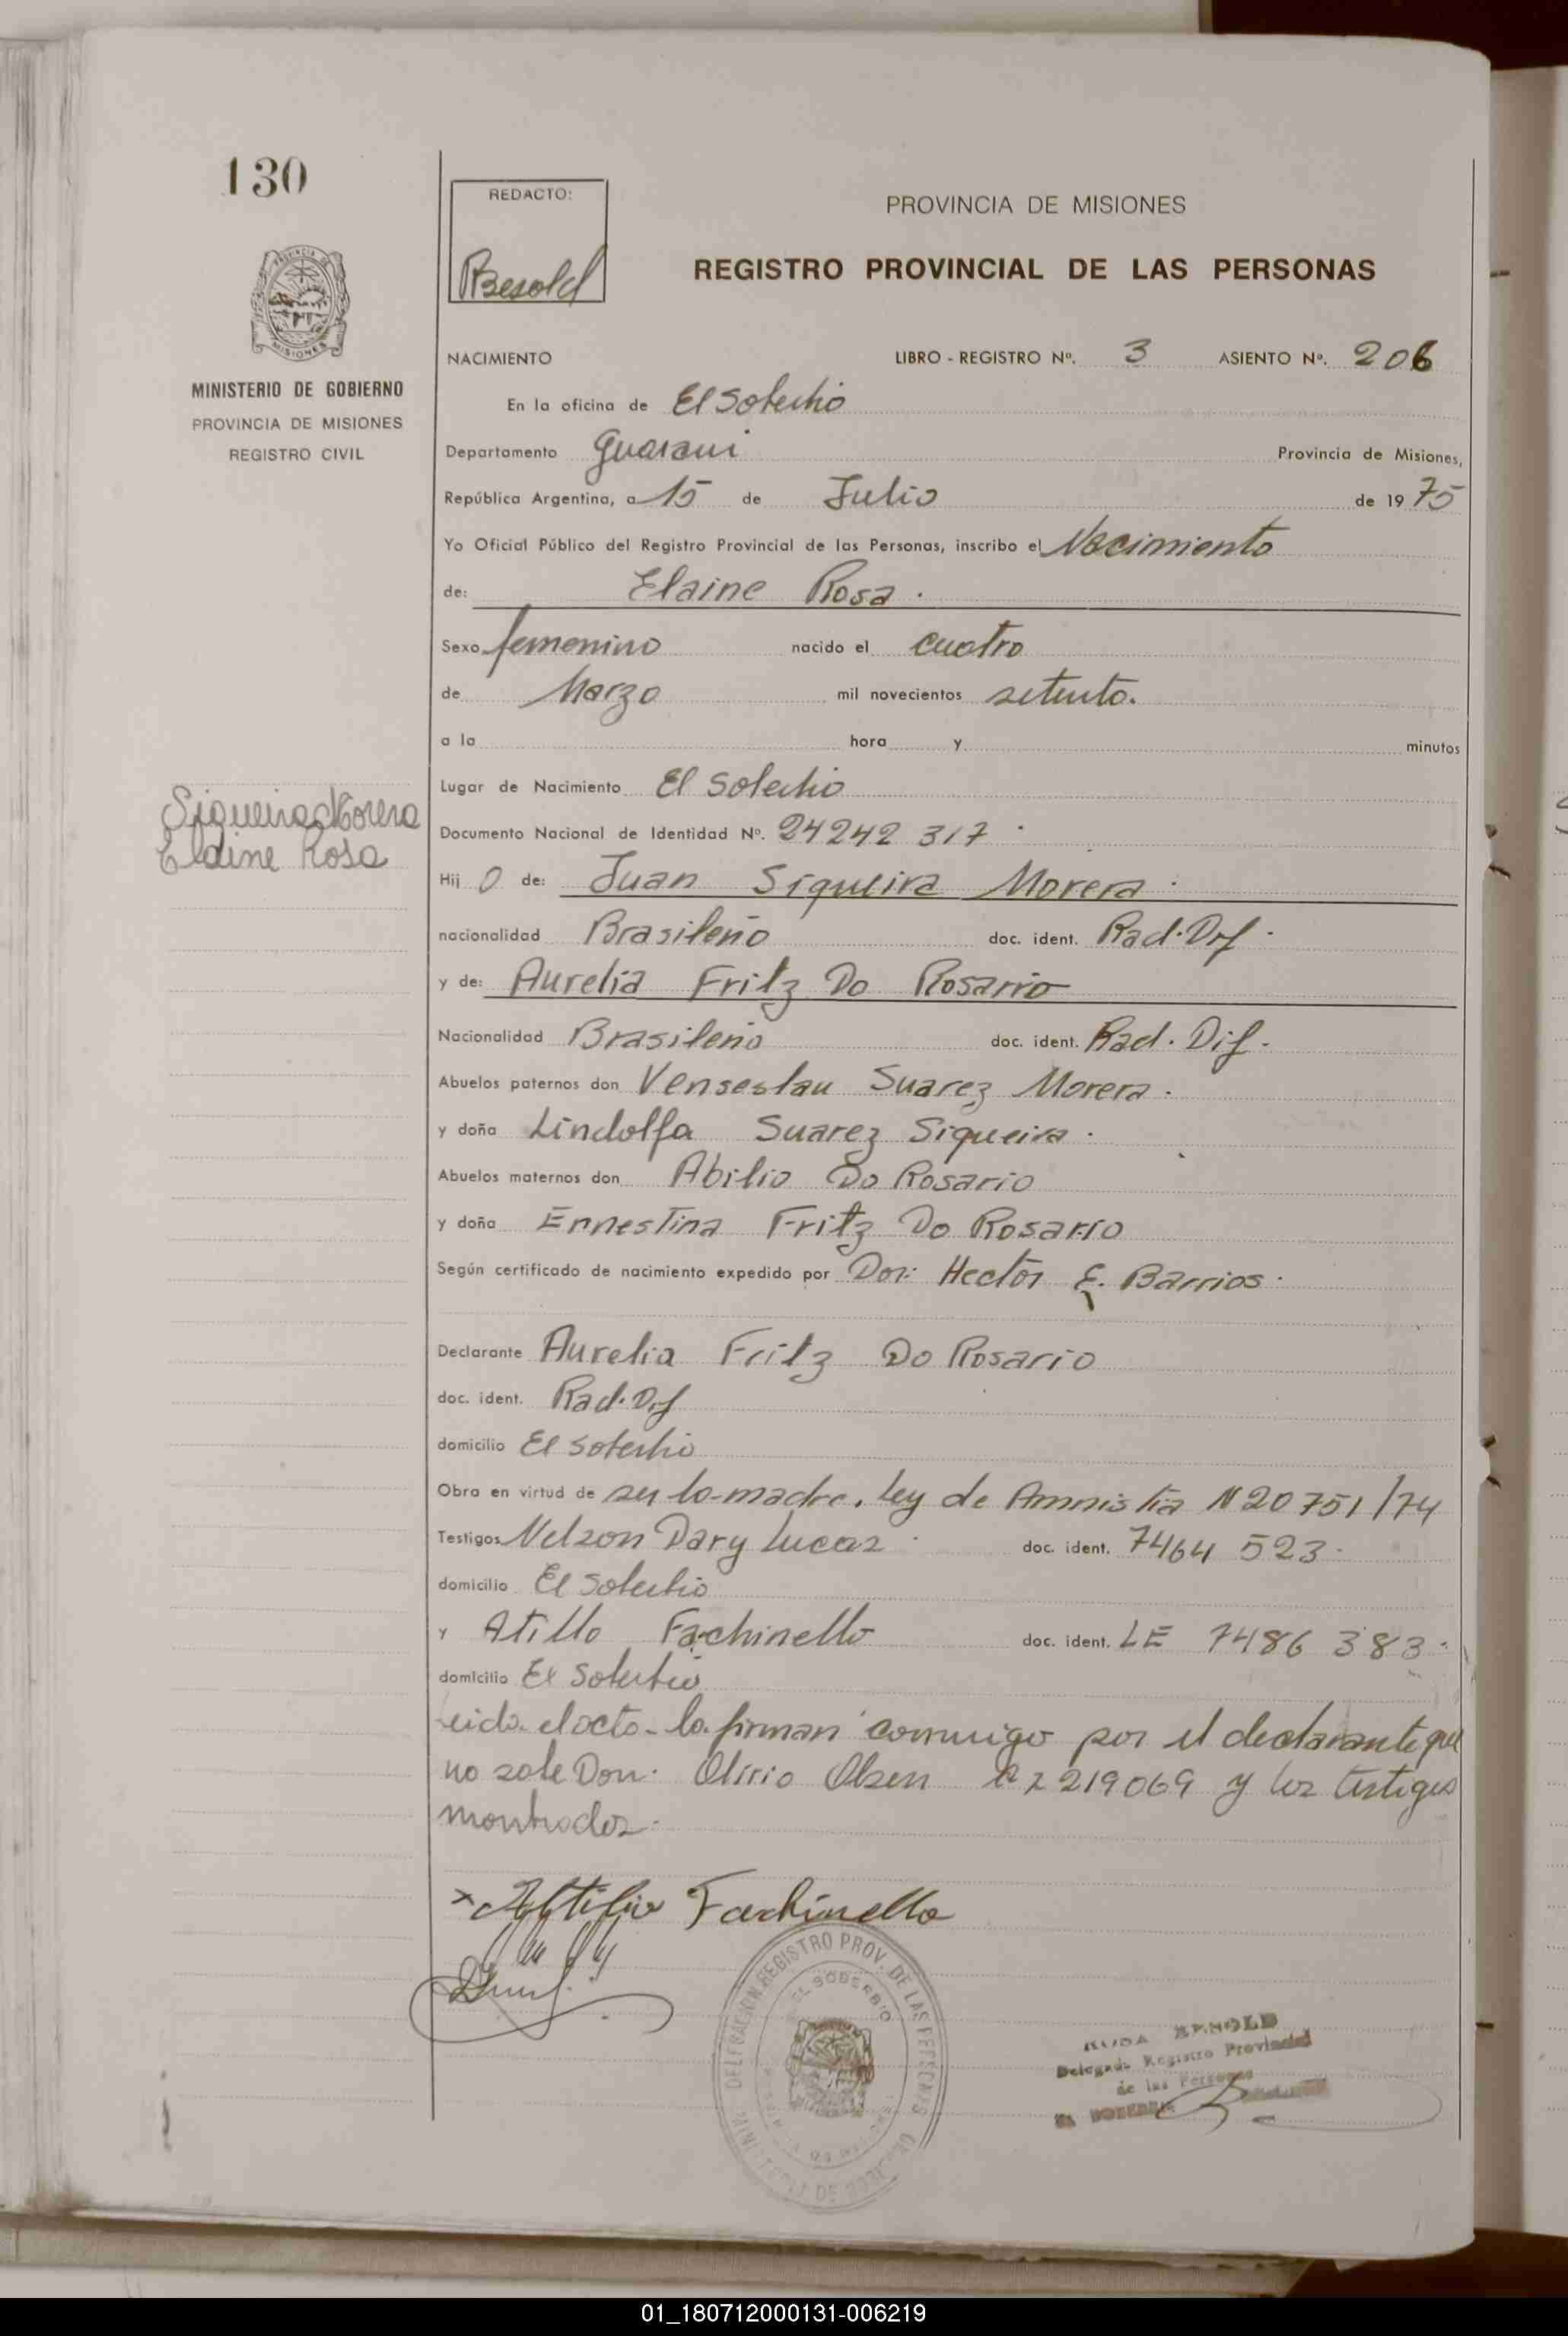 130
REDACTO:
Besold
PROVINCIA DE MISIONES
REGISTRO PROVINCIAL DE LAS PERSONAS
MISIONES
MINISTERIO DE GOBIERNO
PROVINCIA DE MISIONES
REGISTRO CIVIL
NACIMIENTO LIBRO - REGISTRO Nº. 3 ASIENTO Nº. 206
En la oficina de El Soberbio
Departamento Guarani Provincia de Misiones,
República Argentina, a 15 de Julio de 1975
Yo Oficial Público del Registro Provincial de las Personas, inscribo el Nacimiento
de: Elaine Rosa.
Sexo femenino nacido el cuatro
de Marzo mil novecientos setenta.
a la hora y minutos
Lugar de Nacimiento El Soberbio
Siqueira Morera
Elaine Rosa
Documento Nacional de Identidad Nº. 24242 317.
Hij O de: Juan Siqueira Morera.
nacionalidad Brasileño doc. ident. Rad. Dif.
y de: Aurelia Fritz Do Rosario
Nacionalidad Brasileño doc. ident. Rad. Dif.
Abuelos paternos don Venseslau Suarez Morera.
y doña Lindolfa Suarez Siqueira.
Abuelos maternos don Abilio Do Rosario
y doña Ernestina Fritz Do Rosario
Según certificado de nacimiento expedido por Don: Hector E. Barrios.
Declarante Aurelia Fritz Do Rosario
doc. ident. Rad. Dif
domicilio El Soberbio
Obra en virtud de ser la madre. Ley de Amnistia N 20751/74
Testigos Nelzon Dary Lucas doc. ident. 7464 523.
domicilio El Soberbio
y Atillo Fachinello doc. ident. LE 7486 383.
domicilio El Soberbio
Leida el acta la firman conmigo por el declarante que
no sabe Don: Olirio Olsen 219069 y los testigos
nombrados.
x Attilio Fachinello
DELEGACION REGISTRO PROV. DE LAS PERSONAS
EL SOBERBIO
Delegada Registro Provincial
de las Personas
EL SOBERBIO
01_180712000131-006219